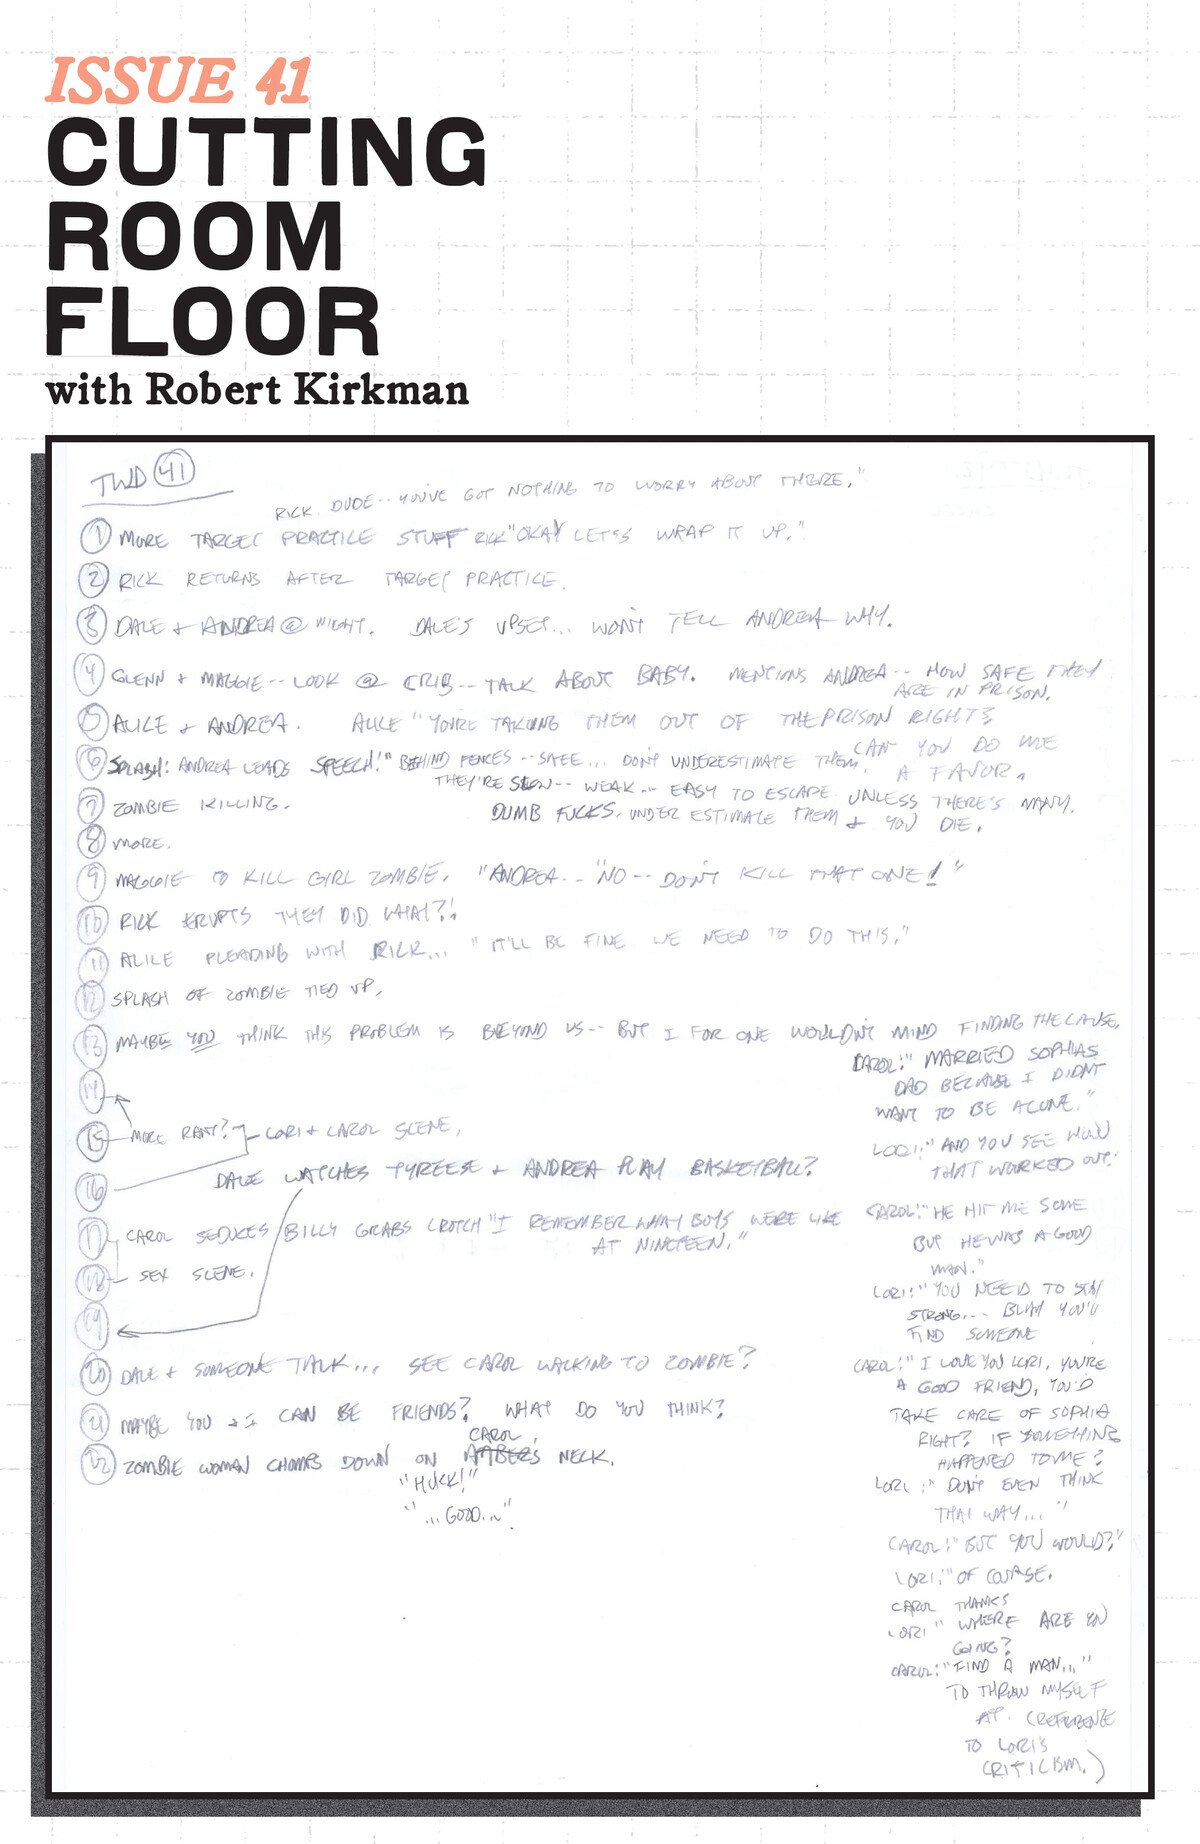 ISSUE 41
CUTTING
ROOM
FLOOR
with Robert Kirkman
TWD 41
RICK. DUDE-- YOU'VE GOT NOTHING TO WORRY ABOUT THERE."
1 MORE TARGET PRACTICE STUFF RICK "OKAY LET'S WRAP IT UP."
2 RICK RETURNS AFTER TARGET PRACTICE.
3 DALE + ANDREA @ NIGHT. DALE'S UPSET... WON'T TELL ANDREA WHY.
4 GLENN + MAGGIE-- LOOK @ CRIB-- TALK ABOUT BABY. MENTIONS ANDREA-- HOW SAFE THEY
ARE IN PRISON.
5 ALICE + ANDREA. ALICE "YOU'RE TAKING THEM OUT OF THE PRISON RIGHT?
CAN YOU DO ME
A FAVOR.
6 SPLASH! ANDREA LEADS SPEECH!" BEHIND FENCES -- SAFE... DON'T UNDERESTIMATE THEM.
THEY'RE SLOW-- WEAK-- EASY TO ESCAPE UNLESS THERE'S MANY.
7 ZOMBIE KILLING.
DUMB FUCKS. UNDER ESTIMATE THEM + YOU DIE.
8 MORE.
9 MAGGIE TO KILL GIRL ZOMBIE. "ANDREA-- "NO-- DON'T KILL THAT ONE!"
10 RICK ERUPTS THEY DID WHAT?!
11 ALICE PLEADING WITH RICK... "IT'LL BE FINE WE NEED TO DO THIS."
12 SPLASH OF ZOMBIE TIED UP.
13 MAYBE YOU THINK THIS PROBLEM IS BEYOND US-- BUT I FOR ONE WOULDN'T MIND FINDING THE CAUSE.
14
15 MORE RANT? LORI + CAROL SCENE.
16
DALE WATCHES TYREESE + ANDREA PLAY BASKETBALL?
17 CAROL SEDUCES BILLY GRABS CROTCH "I REMEMBER WHAT BOYS WERE LIKE
AT NINETEEN."
18 SEX SCENE.
19
20 DALE + SOMEONE TALK... SEE CAROL WALKING TO ZOMBIE?
21 MAYBE YOU + I CAN BE FRIENDS? WHAT DO YOU THINK?
CAROL
22 ZOMBIE WOMAN CHOMPS DOWN ON NECK.
"HUCK!"
"...GOOD..."
CAROL: "MARRIED SOPHIAS
DAD BECAUSE I DIDN'T
WANT TO BE ALONE."
LORI: "AND YOU SEE HOW
THAT WORKED OUT.
CAROL: "HE HIT ME SOME
BUT HE WAS A GOOD
MAN."
LORI: "YOU NEED TO STAY
STRONG... BLAH YOU'LL
FIND SOMEONE
CAROL: "I LOVE YOU LORI, YOU'RE
A GOOD FRIEND, YOU'D
TAKE CARE OF SOPHIA
RIGHT? IF SOMETHING
HAPPENED TO ME?
LORI: "DON'T EVEN THINK
THAT WAY..."
CAROL: "BUT YOU WOULD?"
LORI: "OF COURSE.
CAROL THANKS
LORI "WHERE ARE YOU
GOING?
CAROL: "FIND A MAN..."
TO THROW MYSELF
AT. (REFERENCE
TO LORI'S
CRITICISM.)